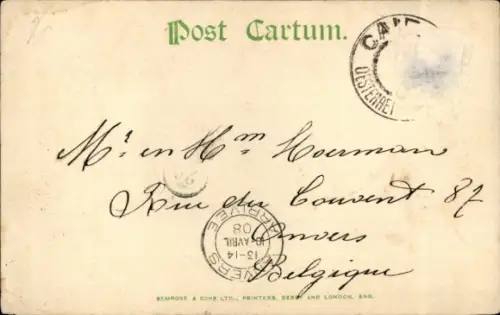 Post Cartum.
OESTERREI
Mr en Hm Moerman
Rue du Couvent 87
Anvers
Belgique
ANVERS
13-14
10 AVRIL
08
ARRIVEE
BEMROSE & SONS LTD., PRINTERS, DERBY AND LONDON, ENG.